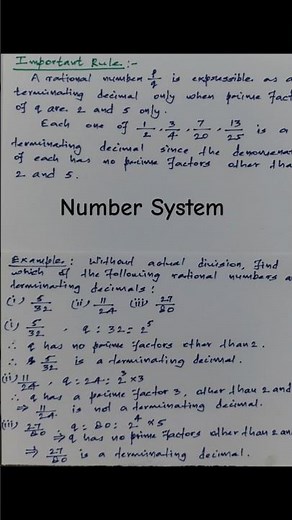 Important Rule:-
A rational number p/q is expressible as a
terminating decimal only when prime fact
of q are 2 and 5 only.
Each one of 1/2, 3/4, 7/20, 13/25 is a
terminating decimal since the denomina
of each has no prime factors other tha
2 and 5.
Number System
Example: Without actual division, find
which of the following rational numbers a
terminating decimals:
(i) 5/32 (ii) 11/24 (iii) 27/80
(i) 5/32, q = 32 = 2^5
∴ q has no prime factors other than 2.
∴ 5/32 is a terminating decimal.
(ii) 11/24, q = 24 = 2^3 × 3
∴ q has a prime factor 3, other than 2 and
⇒ 11/24 is not a terminating decimal.
(iii) 27/80, q = 80 = 2^4 × 5
⇒ q has no prime factors other than 2 an
⇒ 27/80 is a terminating decimal.